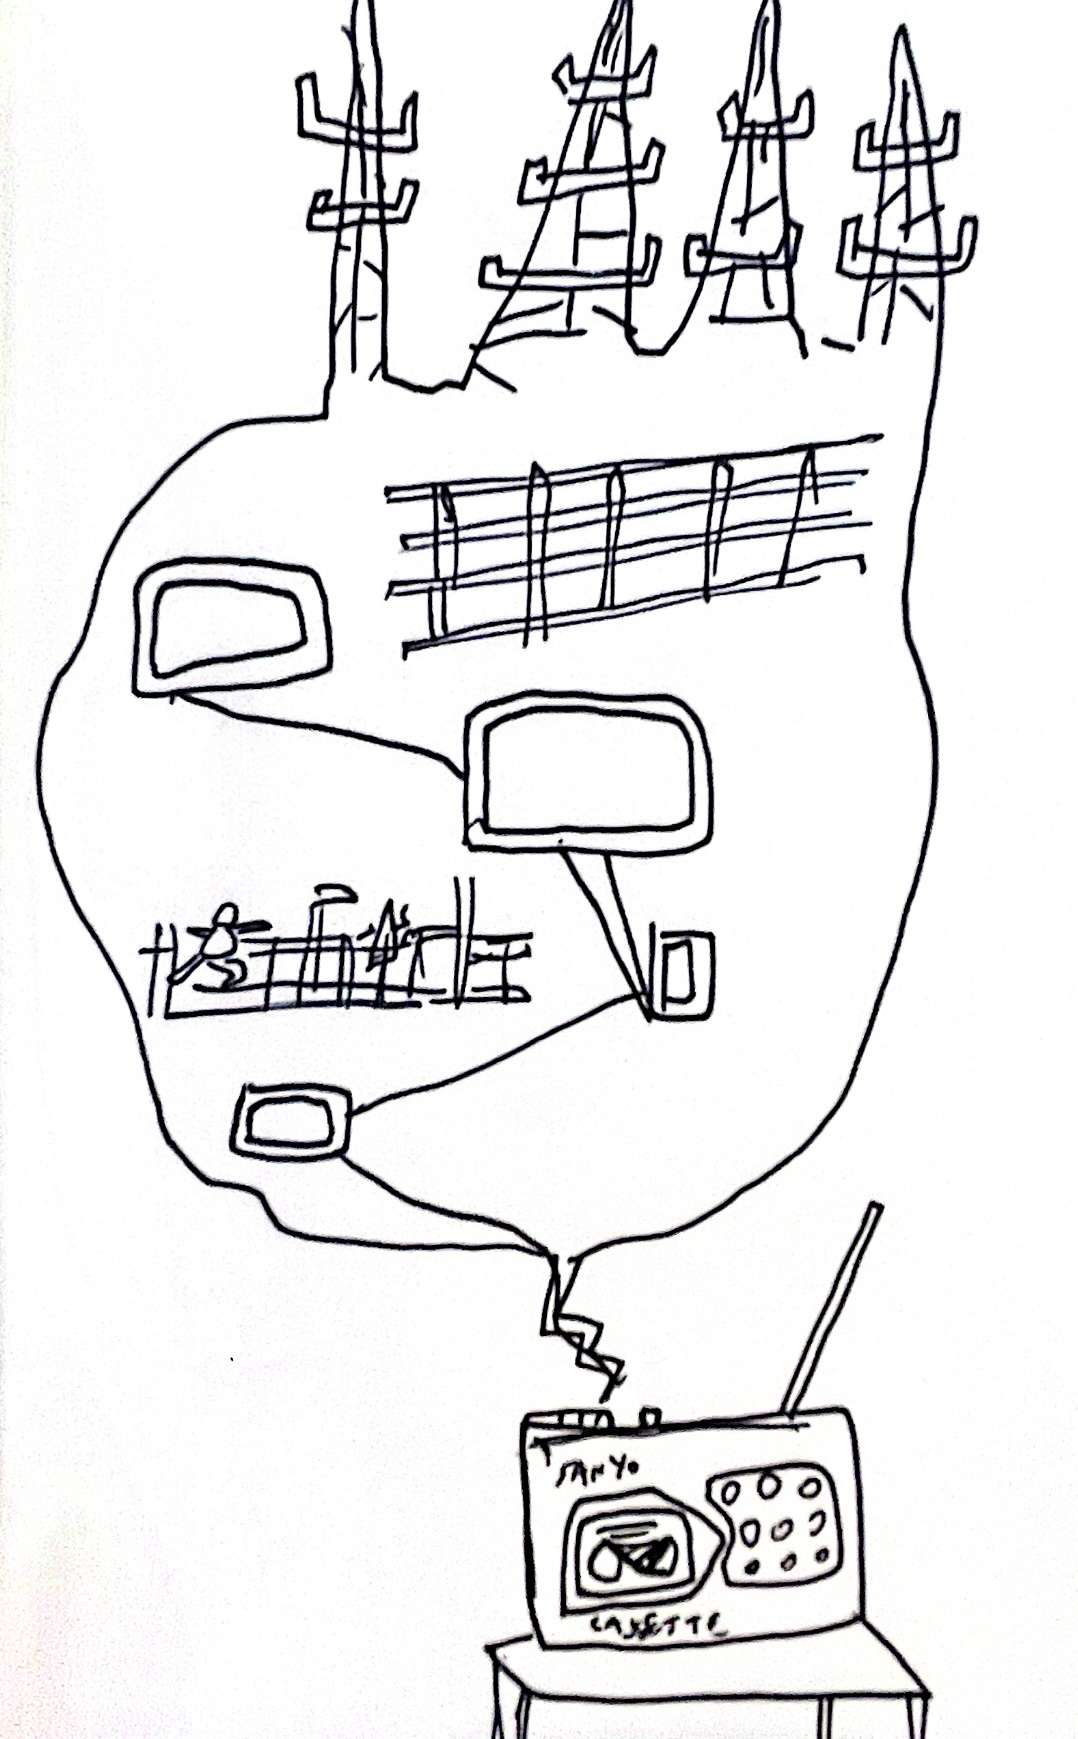 SANYO
CASSETTE